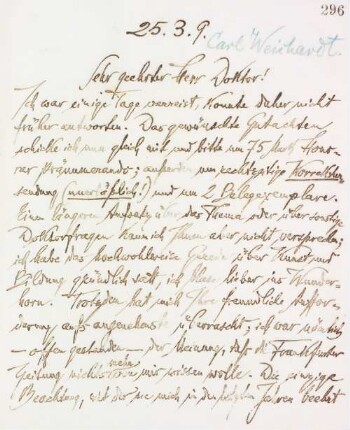 296
25.3.9.
Carl Weichardt.
Sehr geehrter Herr Doktor!
Ich war einige Tage verreist, konnte daher nicht
früher antworten. Das gewünschte Gutachten
schicke ich nun gleich mit und bitte um 75 Mark Hono-
rar Pränumerando; außerdem um rechtzeitige Korrektur-
sendung (unerläßlich!) und um 2 Belegexemplare.
Einen längern Aufsatz über das Thema oder über sonstige
Doktorfragen kann ich Ihnen aber nicht versprechen;
ich habe das hochwohlweise über Kunst und
Bildung gründlich satt, ich blase lieber ins Wunder-
horn. Trotzdem hat mich Ihre freundliche Auffor-
derung aufs angenehmste überrascht; ich war nämlich
— offen gestanden — der Meinung, daß die Frankfurter
Zeitung nichts mehr von mir wissen wolle. Die einzige
Beachtung, mit der sie mich in den letzten Jahren beehrt